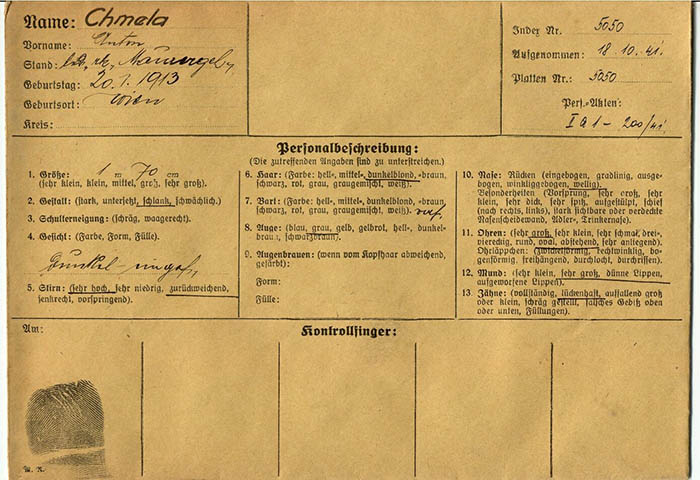 Name: Chmela
Vorname: Anton
Stand: led. rk. Maurergeh.
Geburtstag: 20.7.1913
Geburtsort: Wien
Kreis:
Index Nr. 5050
Aufgenommen: 18.10.41.
Platten Nr.: 5050
Pers.-Akten:
I a 1 - 200/41
Personalbeschreibung:
(Die zutreffenden Angaben sind zu unterstreichen.)
1. Größe: 1 m 70 cm
(sehr klein, klein, mittel, groß, sehr groß).
2. Gestalt: (stark, untersetzt, schlank, schwächlich).
3. Schulterneigung: (schräg, waagerecht).
4. Gesicht: (Farbe, Form, Fülle).
dunkel-
5. Stirn: (sehr hoch, sehr niedrig, zurückweichend,
senkrecht, vorspringend).
6. Haar: (Farbe: hell-, mittel-, dunkelblond, -braun,
schwarz, rot, grau, graugemischt, weiß).
7. Bart: (Farbe: hell-, mittel-, dunkelblond, -braun,
schwarz, rot, grau, graugemischt, weiß).
8. Auge: (blau, grau, gelb, gelbrot, hell-, dunkel-
braun, schwarzbraun).
9. Augenbrauen: (wenn vom Kopfhaar abweichend,
gefärbt):
Form:
Fülle:
10. Nase: Rücken (eingebogen, gradlinig, ausge-
bogen, winkliggebogen, wellig).
Besonderheiten (Vorsprung, sehr groß, sehr
klein, sehr dick, sehr spitz, aufgestülpt, schief
(nach rechts, links), stark sichtbare oder verdeckte
Nasenscheidewand, Adler-, Trinkernase).
11. Ohren: (sehr groß, sehr klein, sehr schmal, drei-,
viereckig, rund, oval, abstehend, sehr anliegend).
Ohrläppchen: (zwickelförmig, rechtwinklig, bo-
genförmig, freihängend, durchlocht, durchrissen).
12. Mund: (sehr klein, sehr groß, dünne Lippen,
aufgeworfene Lippen).
13. Zähne: (vollständig, lückenhaft, auffallend groß
oder klein, schräg gestellt, falsches Gebiß oben
oder unten, Füllungen).
Am:
Kontrollfinger: